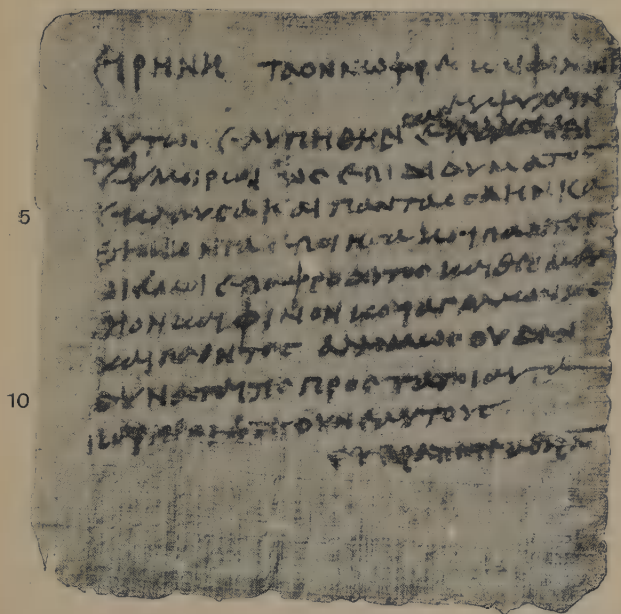 Ειρηνη Ταοννωφρει και Φιλωνι
ευψυχειν
ουτως ελυπηθην και εκλαυσα επι τωι
ευμοιρωι ως επι Διδυματος
5 εκλαυσα και παντα οσα ην κα
θηκοντα εποιησα και παντες
οι εμοι Επαφροδειτος και Θερμου
θιον και Φιλιον και Απολλωνιος
και Πλαντας αλλ ομως ουδεν
10 δυναται τις προς τα τοιαυτα
παρηγορειτε ουν εαυτους
ευ πραττετε